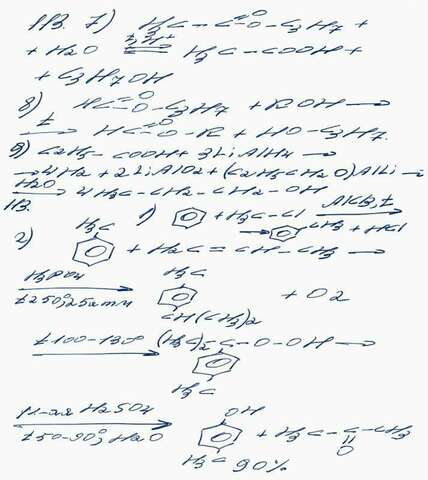 113. 7) H3C-C(=O)-O-C3H7 +
+ H2O ⇌ (t, H+) H3C-COOH +
+ C3H7OH
8) HC(=O)-O-C3H7 + ROH →
t → HC(=O)-O-R + HO-C3H7.
9) C2H5-COOH + 3LiAlH4 →
→ 4H2 + 2LiAlO2 + (C2H5CH2O)AlLi →
H2O → 4H3C-CH2-CH2-OH
113. 1) + H3C-Cl AlCl3, t →
→ CH3 + HCl
2) H3C + H2C=CH-CH3 →
H3PO4 t250°, 25атм → H3C CH(CH3)2 + O2
t100-130° → (H3C)2-C-O-OH →
H3C
H2SO4 t50-90°, H2O → OH H3C + H3C-C-CH3
O
90%